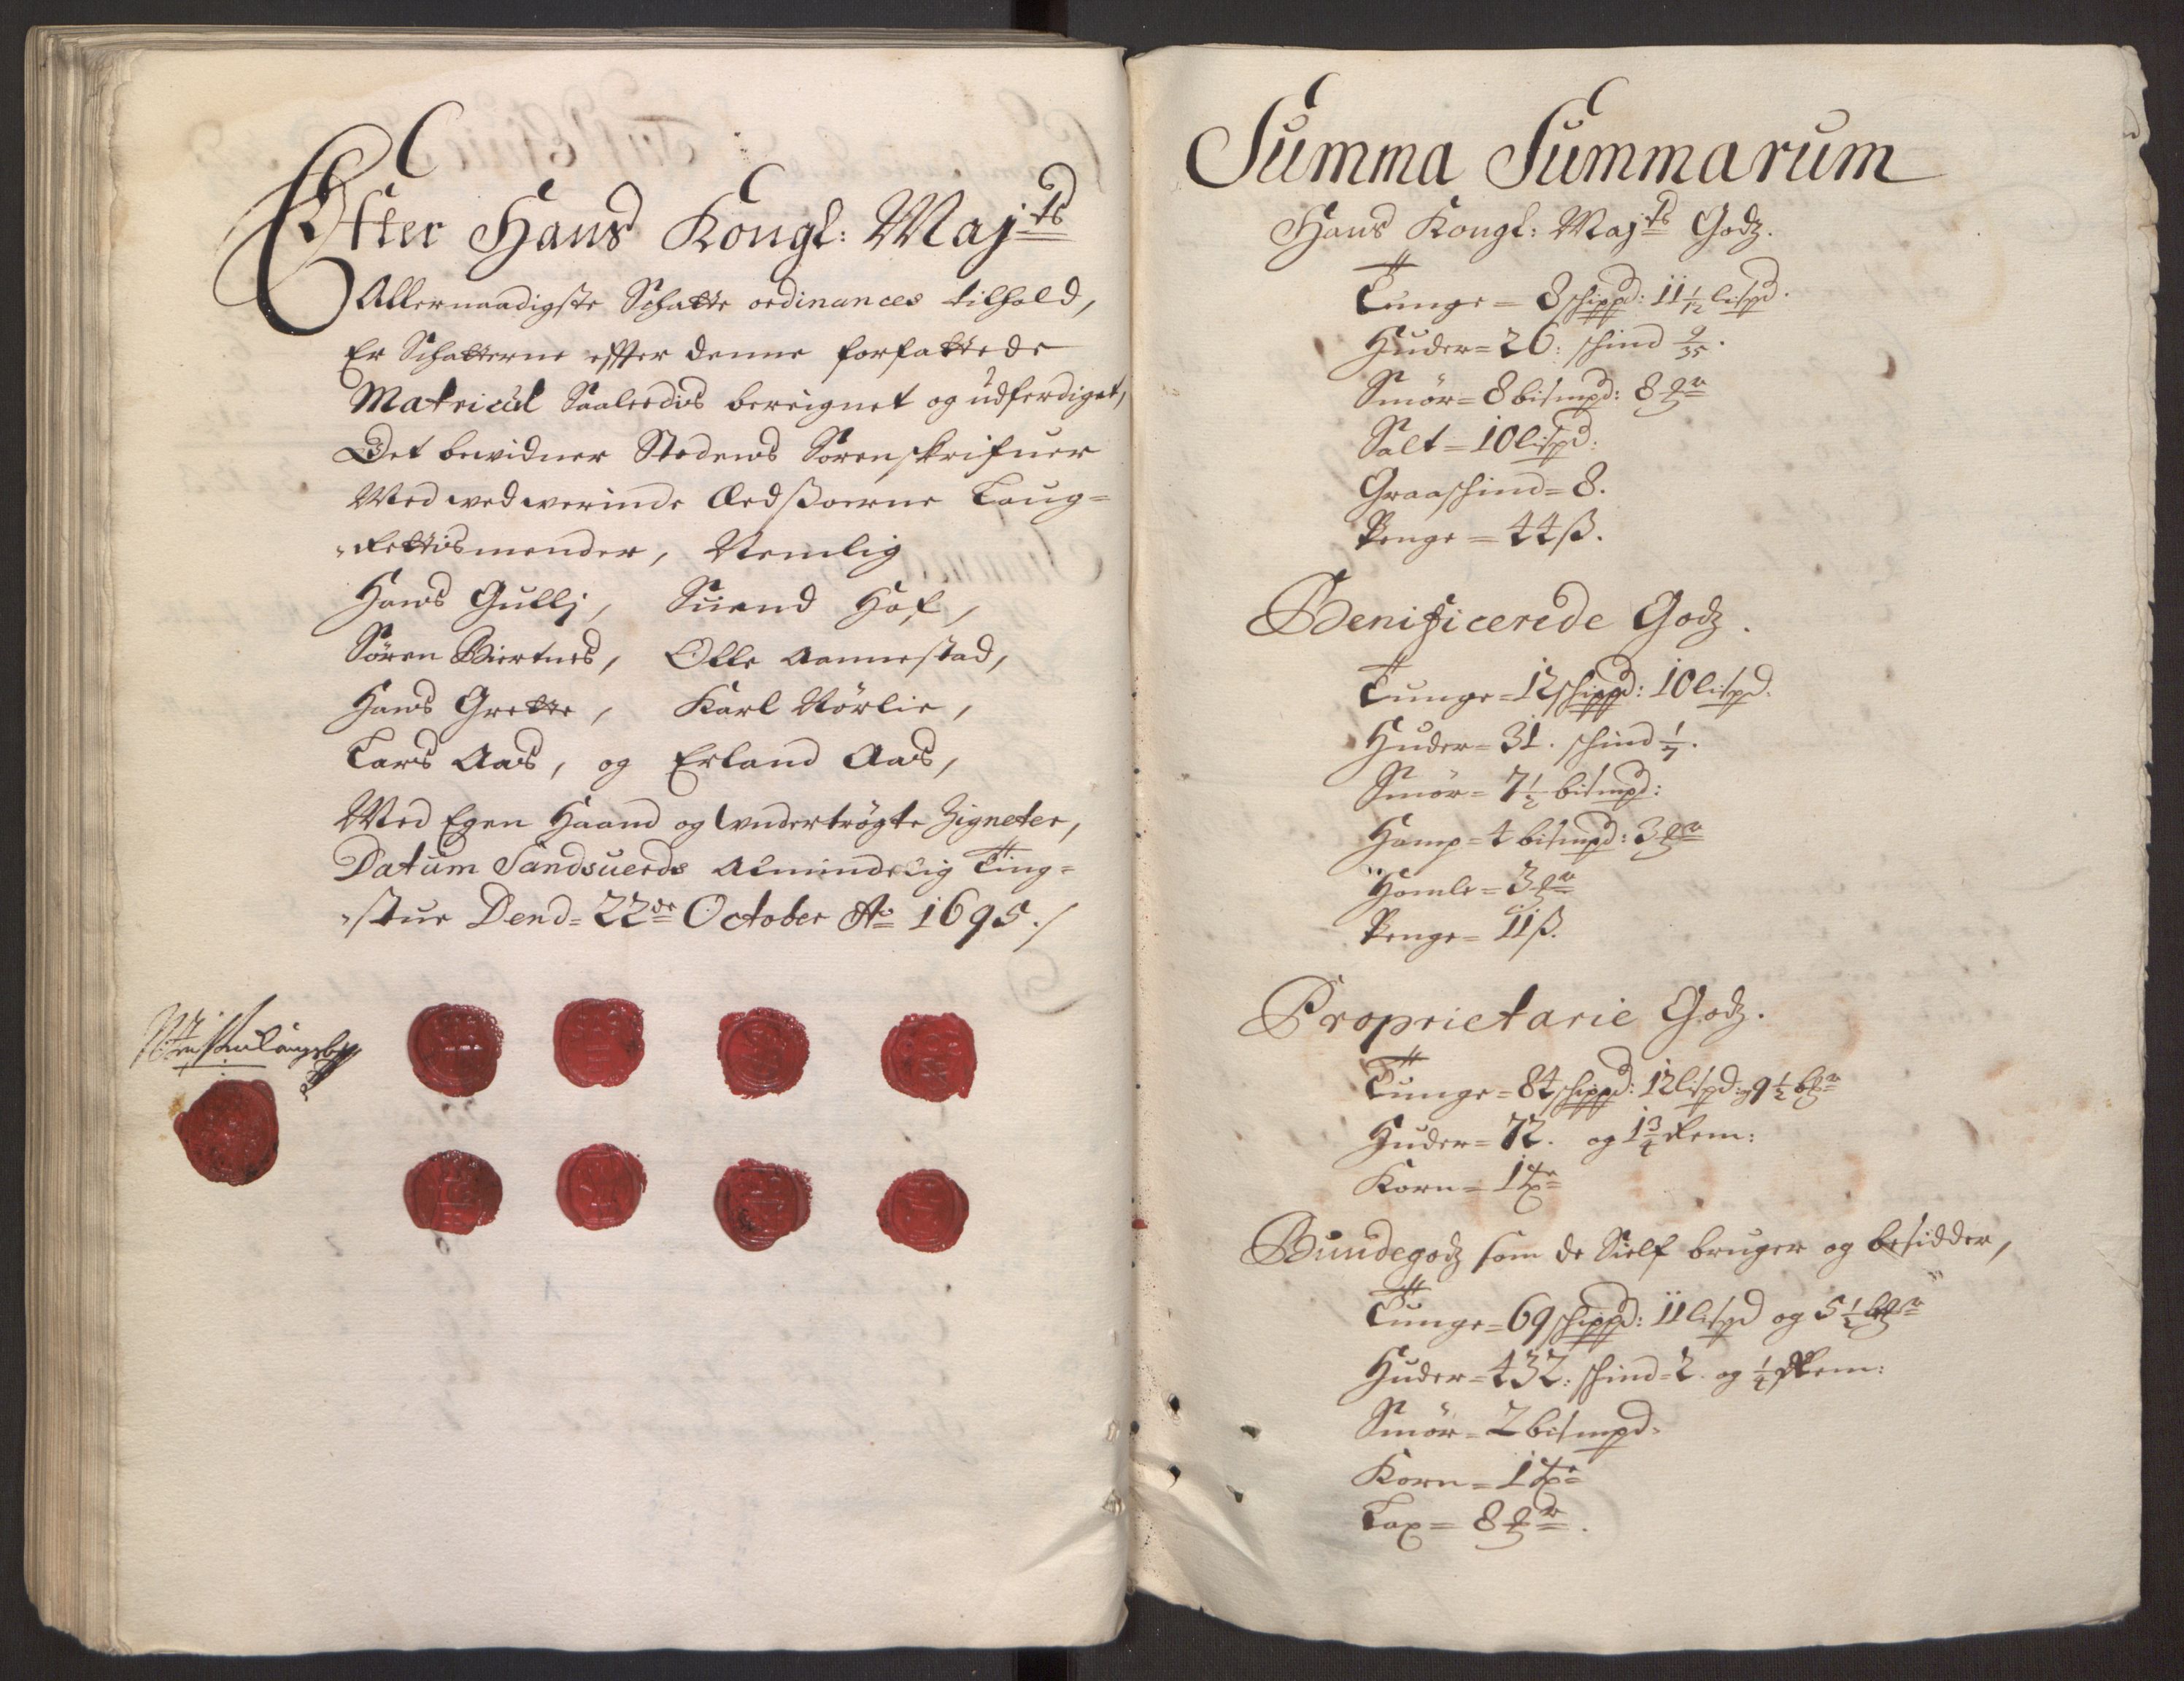 Efter Hans Kongl: Maj.ts
Allernaadigste Schatte ordinances tilhold,
Er Schatterne effter denne forfattede
Matricul Saaledis bereignet og udferdiget,
Det bewidner Stedens Sorenskrifuer
Med wed werinde Ædsoerne Laug=
Rettismender, Nemlig
Hans Gullj, Suend Hof,
Sören Biertnes, Olle Aannestad,
Hans Grette, Karl Nörlie,
Lars Aas, og Erland Aas,
Med Egen Haand og undertrögte Zigneter,
Datum Sandsuerds Almindelig Ting=
stue Dend= 22de October Ao 1695./
Summa Summarum
Hans Kongl: Maj.ts Godz.
Tunge= 8 schippd: 11 1/12 lispd.
Huder= 26: schind 9/35.
Smör= 8 bismpd: 8 ℔r
Salt= 10 lispd:
Graaschind= 8.
Penge= 44 ß.
Benificerede Godz.
Tunge= 12 schippd: 10 lispd.
Huder= 31. schind 1/7.
Smör= 7 1/2 bismpd:
Hamp= 4 bismpd: 3 ℔r
Homle= 3 ℔r
Penge= 11 ß.
Proprietarie Godz.
Tunge= 84 schippd: 12 lispd: 9 1/2 b℔r
Huder= 72. og 1 3/4 Rem:
Korn= 1 tr
Bundegodz som de Sielf bruger og besidder,
Tunge= 69 schippd: 11 lispd og 5 1/2 b℔r
Huder= 432: schind= 2. og 1/4 Rem:
Smör= 2 bismpd:
Korn= 1 tr
Lax= 8 ℔r.